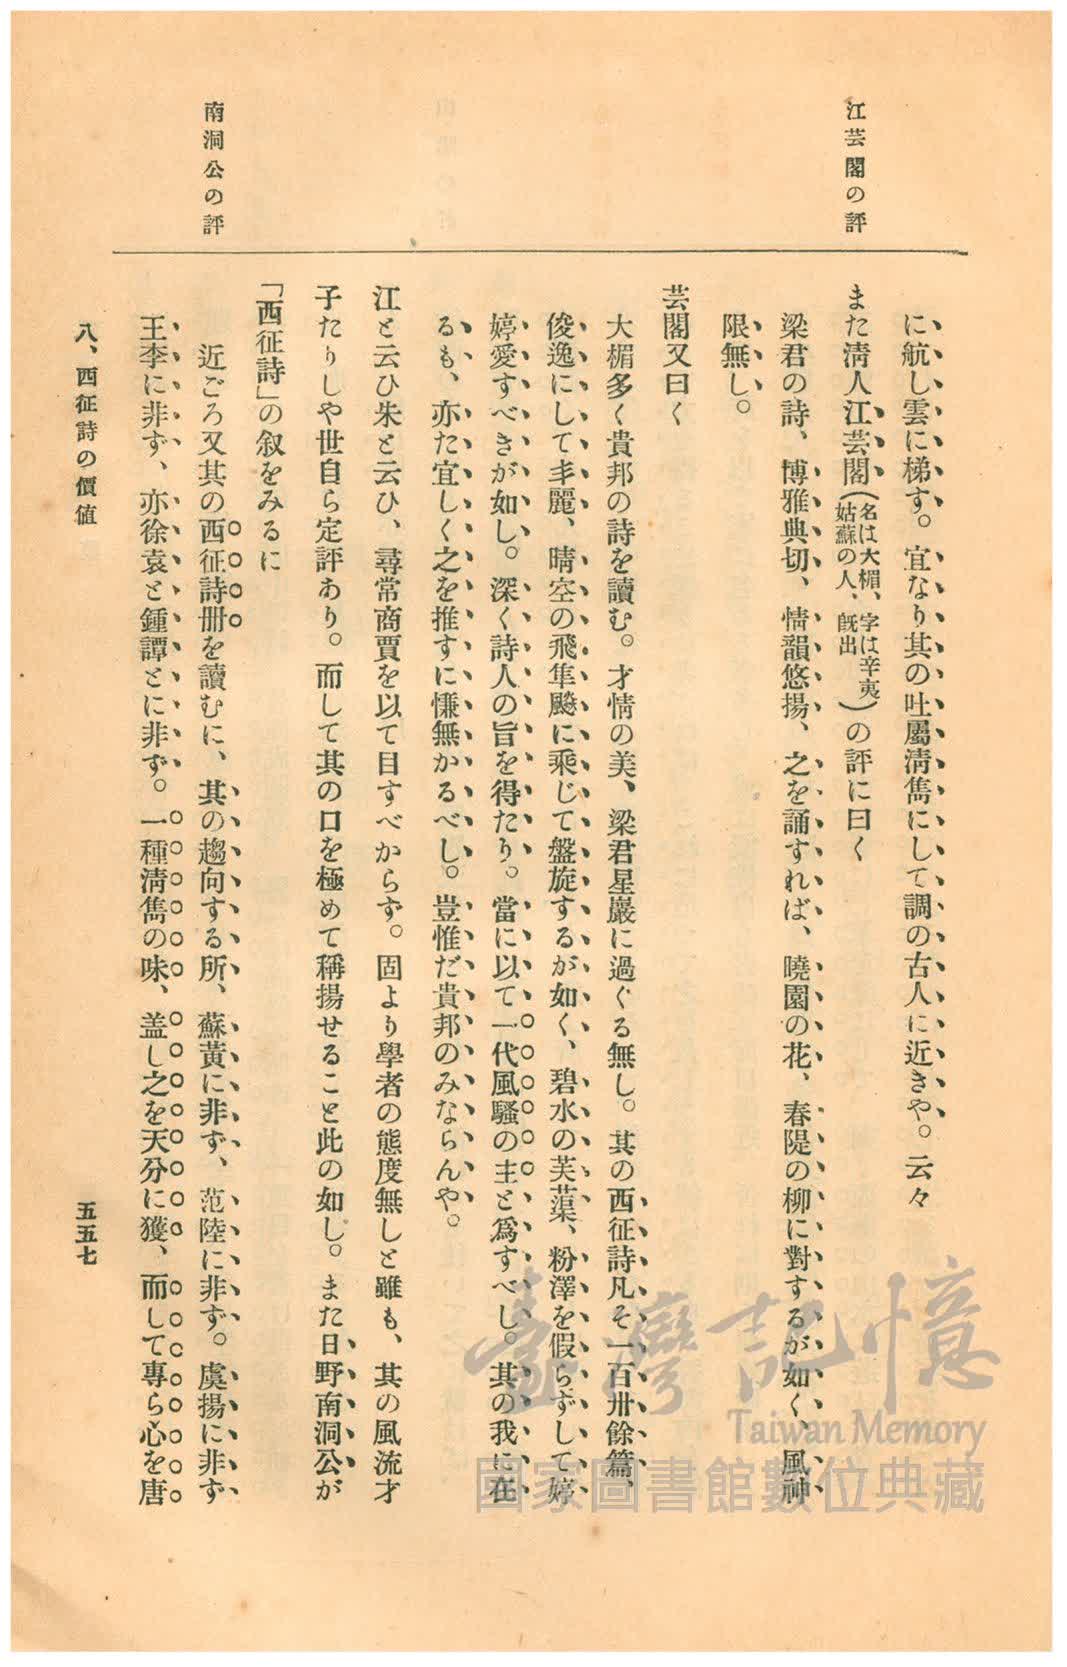 江芸閣の評
に航し雲に梯す。宜なり其の吐屬淸雋にして調の古人に近きや。云々
また淸人江芸閣(名は大楣、字は辛夷姑蘇の人、旣出)の評に曰く
梁君の詩、博雅典切、情韻悠揚、之を誦すれば、曉園の花、春隄の柳に對するが如く、風神
限無し。
芸閣又曰く
大楣多く貴邦の詩を讀む。才情の美、梁君星巖に過ぐる無し。其の西征詩凡そ一百卅餘篇、
俊逸にして丰麗、晴空の飛隼飈に乘じて盤旋するが如く、碧水の芙蕖、粉澤を假らずして婷
婷愛すべきが如し。深く詩人の旨を得たり。當に以て一代風騷の主と爲すべし。其の我に在
るも、亦た宜しく之を推すに慊無かるべし。豈惟だ貴邦のみならんや。
江と云ひ朱と云ひ、尋常商賈を以て目すべからず。固より學者の態度無しと雖も、其の風流才
子たりしや世自ら定評あり。而して其の口を極めて稱揚せること此の如し。また日野南洞公が
「西征詩」の叙をみるに
南洞公の評
近ごろ又其の西征詩册を讀むに、其の趨向する所、蘇黃に非ず、范陸に非ず。虞揚に非ず
王李に非ず、亦徐袁と鍾譚とに非ず。一種淸雋の味、盖し之を天分に獲、而して專ら心を唐
八、西征詩の價値
五五七
臺灣記憶
Taiwan Memory
國家圖書館數位典藏